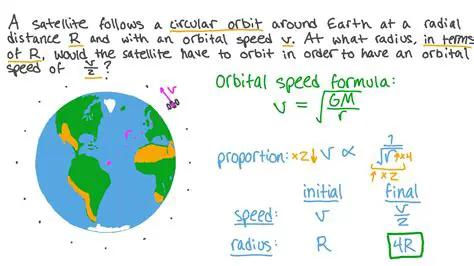 A satellite follows a circular orbit around Earth at a radial
distance R and with an orbital speed v. At what radius, in terms
of R, would the satellite have to orbit in order to have an orbital
speed of v/2?
Orbital speed formula:
v = √(GM/r)
v
r
proportion: ×2↓ v ∝ 1/√r ↑×4
↑×2
initial final
speed: v v/2
radius: R 4R